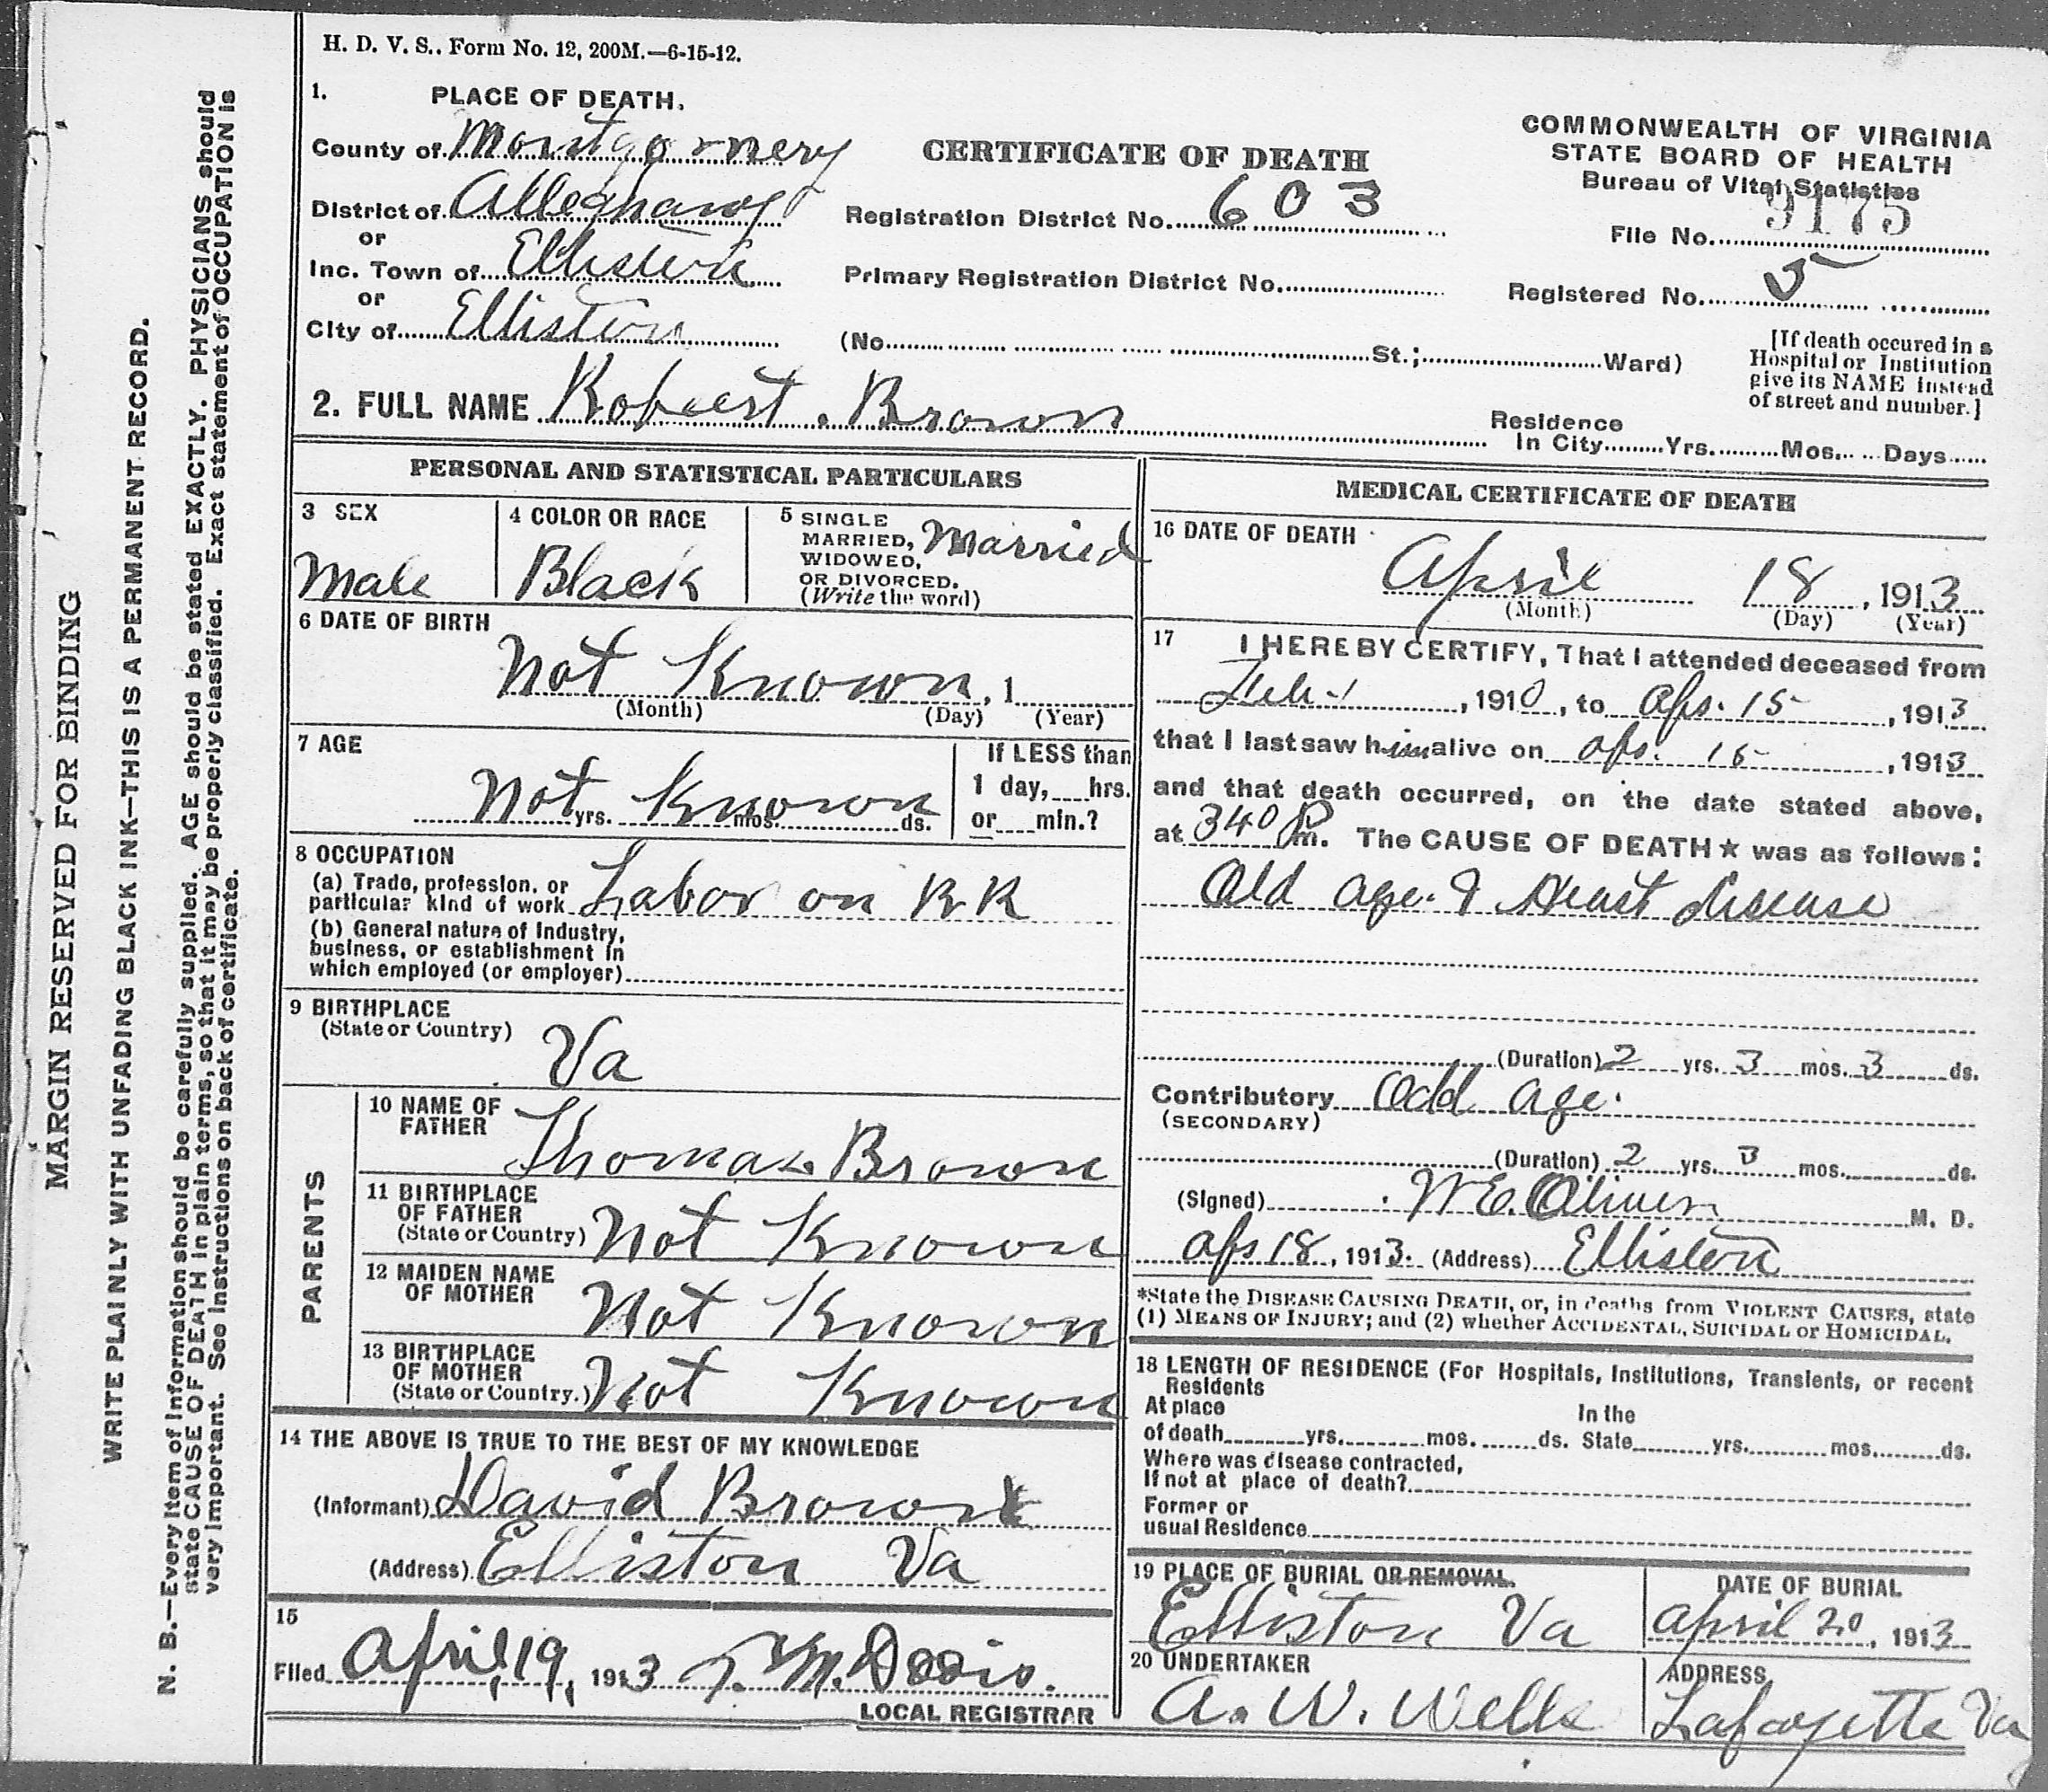 H. D. V. S.. Form No. 12, 200M.—6-15-12.
1. PLACE OF DEATH.
County of Montgomery
District of Alleghany
or
Inc. Town of Elliston
or
City of Elliston
CERTIFICATE OF DEATH
Registration District No. 603
Primary Registration District No.
(No. St.; Ward)
COMMONWEALTH OF VIRGINIA
STATE BOARD OF HEALTH
Bureau of Vital Statistics
File No. 9175
Registered No. 5
[If death occured in a
Hospital or Institution
give its NAME instead
of street and number.]
2. FULL NAME Robert. Brown
Residence
In City Yrs. Mos. Days
PERSONAL AND STATISTICAL PARTICULARS
3 SEX
Male
4 COLOR OR RACE
Black
5 SINGLE
MARRIED,
WIDOWED,
OR DIVORCED.
(Write the word)
Married
6 DATE OF BIRTH
Not Known, 1
(Month) (Day) (Year)
7 AGE
Not Known
yrs. mos. ds.
If LESS than
1 day, hrs.
or min.?
8 OCCUPATION
(a) Trade, profession, or
particular kind of work Labor on RR
(b) General nature of Industry,
business, or establishment in
which employed (or employer)
9 BIRTHPLACE
(State or Country)
Va
PARENTS
10 NAME OF
FATHER
Thomas Brown
11 BIRTHPLACE
OF FATHER
(State or Country) Not Known
12 MAIDEN NAME
OF MOTHER
Not Known
13 BIRTHPLACE
OF MOTHER
(State or Country.) Not Known
14 THE ABOVE IS TRUE TO THE BEST OF MY KNOWLEDGE
(Informant) David Brown
(Address) Elliston Va
15
Filed April, 19, 1913 M. Davis.
LOCAL REGISTRAR
MEDICAL CERTIFICATE OF DEATH
16 DATE OF DEATH
April 18, 1913
(Month) (Day) (Year)
17 I HEREBY CERTIFY, That I attended deceased from
Feb. 1, 1910, to Apr. 15, 1913
that I last saw him alive on Apr. 15, 1913
and that death occurred, on the date stated above,
at 340 P m. The CAUSE OF DEATH★ was as follows:
Old age. & Heart disease
(Duration) 2 yrs. 3 mos. 3 ds.
Contributory Old age.
(SECONDARY)
(Duration) 2 yrs. 3 mos. ds.
(Signed) W E. Oliver M. D.
Apr 18, 1913. (Address) Elliston
*State the DISEASE CAUSING DEATH, or, in deaths from VIOLENT CAUSES, state
(1) MEANS OF INJURY; and (2) whether ACCIDENTAL, SUICIDAL or HOMICIDAL.
18 LENGTH OF RESIDENCE (For Hospitals, Institutions, Transients, or recent
Residents
At place In the
of death yrs. mos. ds. State yrs. mos. ds.
Where was disease contracted,
If not at place of death?
Former or
usual Residence
19 PLACE OF BURIAL OR REMOVAL.
Elliston Va
DATE OF BURIAL
April 20, 1913
20 UNDERTAKER
A. W. Wells
ADDRESS
Lafayette Va
MARGIN RESERVED FOR BINDING
WRITE PLAINLY WITH UNFADING BLACK INK—THIS IS A PERMANENT RECORD.
N. B.—Every Item of Information should be carefully supplied. AGE should be stated EXACTLY. PHYSICIANS should
state CAUSE OF DEATH in plain terms, so that it may be properly classified. Exact statement of OCCUPATION is
very important. See instructions on back of certificate.